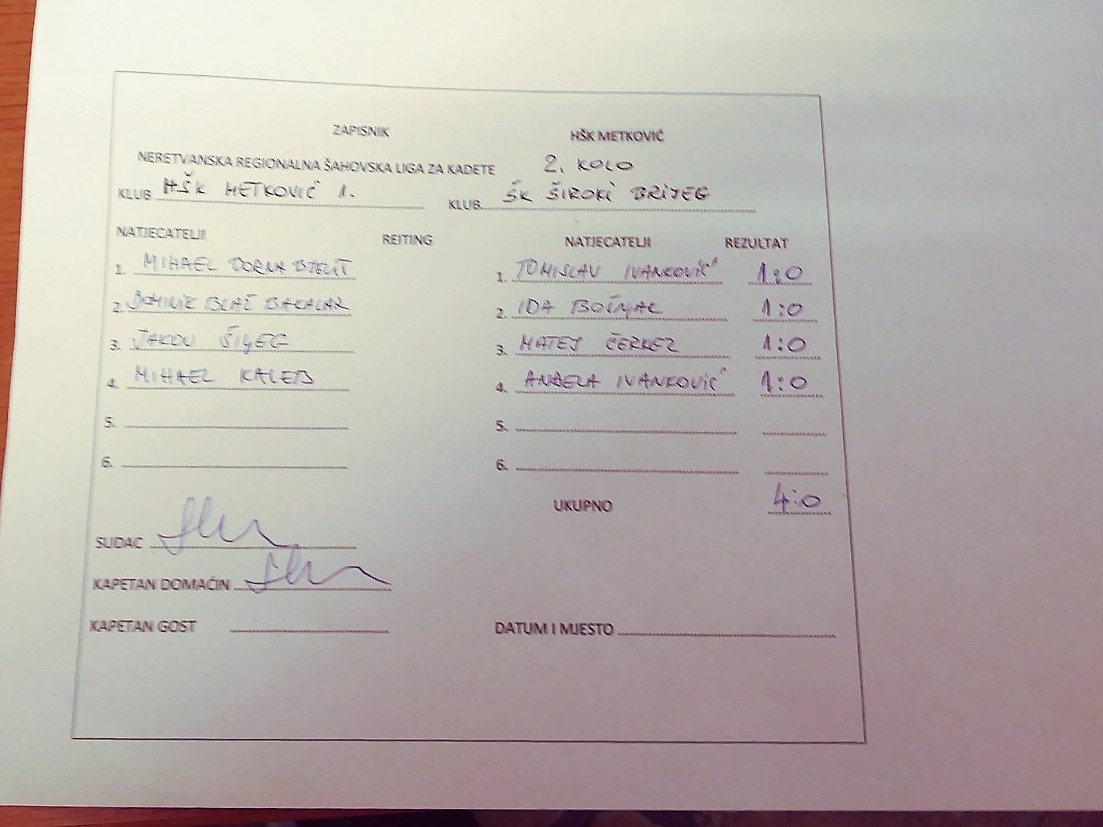 ZAPISNIK HŠK METKOVIĆ
NERETVANSKA REGIONALNA ŠAHOVSKA LIGA ZA KADETE 2. KOLO
KLUB HŠK METKOVIĆ 1. KLUB ŠK ŠIROKI BRIJEG
NATJECATELJI REITING NATJECATELJI REZULTAT
1. MIHAEL 1. TOMISLAV IVANKOVIĆ 1:0
2. DOMINIK BLAŽ BAKALAR 2. IDA 1:0
3. JAKOV 3. MATEJ ČERKEZ 1:0
4. MIHAEL KALEB 4. ANĐELA IVANKOVIĆ 1:0
5. 5.
6. 6.
UKUPNO 4:0
SUDAC
KAPETAN DOMAĆIN
KAPETAN GOST DATUM I MJESTO